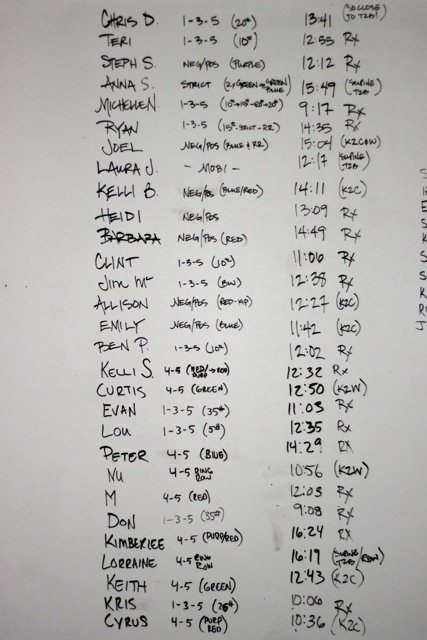 CHRIS D. 1-3-5 (20#) 13:41 (SO CLOSE TO T2B!)
TERI 1-3-5 (10#) 12:55 Rx
STEPH S. NEG/POS (PURPLE) 12:12 Rx
ANNA S. STRICT (2x GREEN→GREEN/BLUE) 15:49 (SUPINE T2B)
MICHELLE N. 1-3-5 9:17 Rx
RYAN 1-3-5 (15# STRICT-RR) 14:35 Rx
JOEL NEG/POS (BLUE & RR) 15:04 (K2C&W)
LAURA J. - MOBI - 12:17 (SUPINE T2B)
KELLI B. NEG/POS (BLUE/RED) 14:11 (K2C)
HEIDI NEG/POS 13:09 Rx
BARBARA NEG/POS (RED) 14:49 Rx
CLINT 1-3-5 (10#) 11:06 Rx
JIM Mc 1-3-5 (BW) 12:38 Rx
ALLISON NEG/POS (RED-KIP) 12:27 (K2C)
EMILY NEG/POS (BLUE) 11:42 (K2C)
BEN P. 1-3-5 (10#) 12:02 Rx
KELLI S. 4-5 (RED/PURP→RED) 12:32 Rx
CURTIS 4-5 (GREEN) 12:50 (K2W)
EVAN 1-3-5 (35#) 11:03 Rx
LOU 1-3-5 (5#) 12:35 Rx
PETER 4-5 (BLUE) 14:29 Rx
NU 4-5 RING ROW 10:56 (K2W)
M 4-5 (RED) 12:03 Rx
DON 1-3-5 (35#) 9:08 Rx
KIMBERLEE 4-5 (PURP/RED) 16:24 Rx
LORRAINE 4-5 RING ROW 16:19 (SUPINE T2B/ROW)
KEITH 4-5 (GREEN) 12:43 (K2C)
KRIS 1-3-5 (25#) 10:06 Rx
CYRUS 4-5 (PURP/RED) 10:36 (K2C)